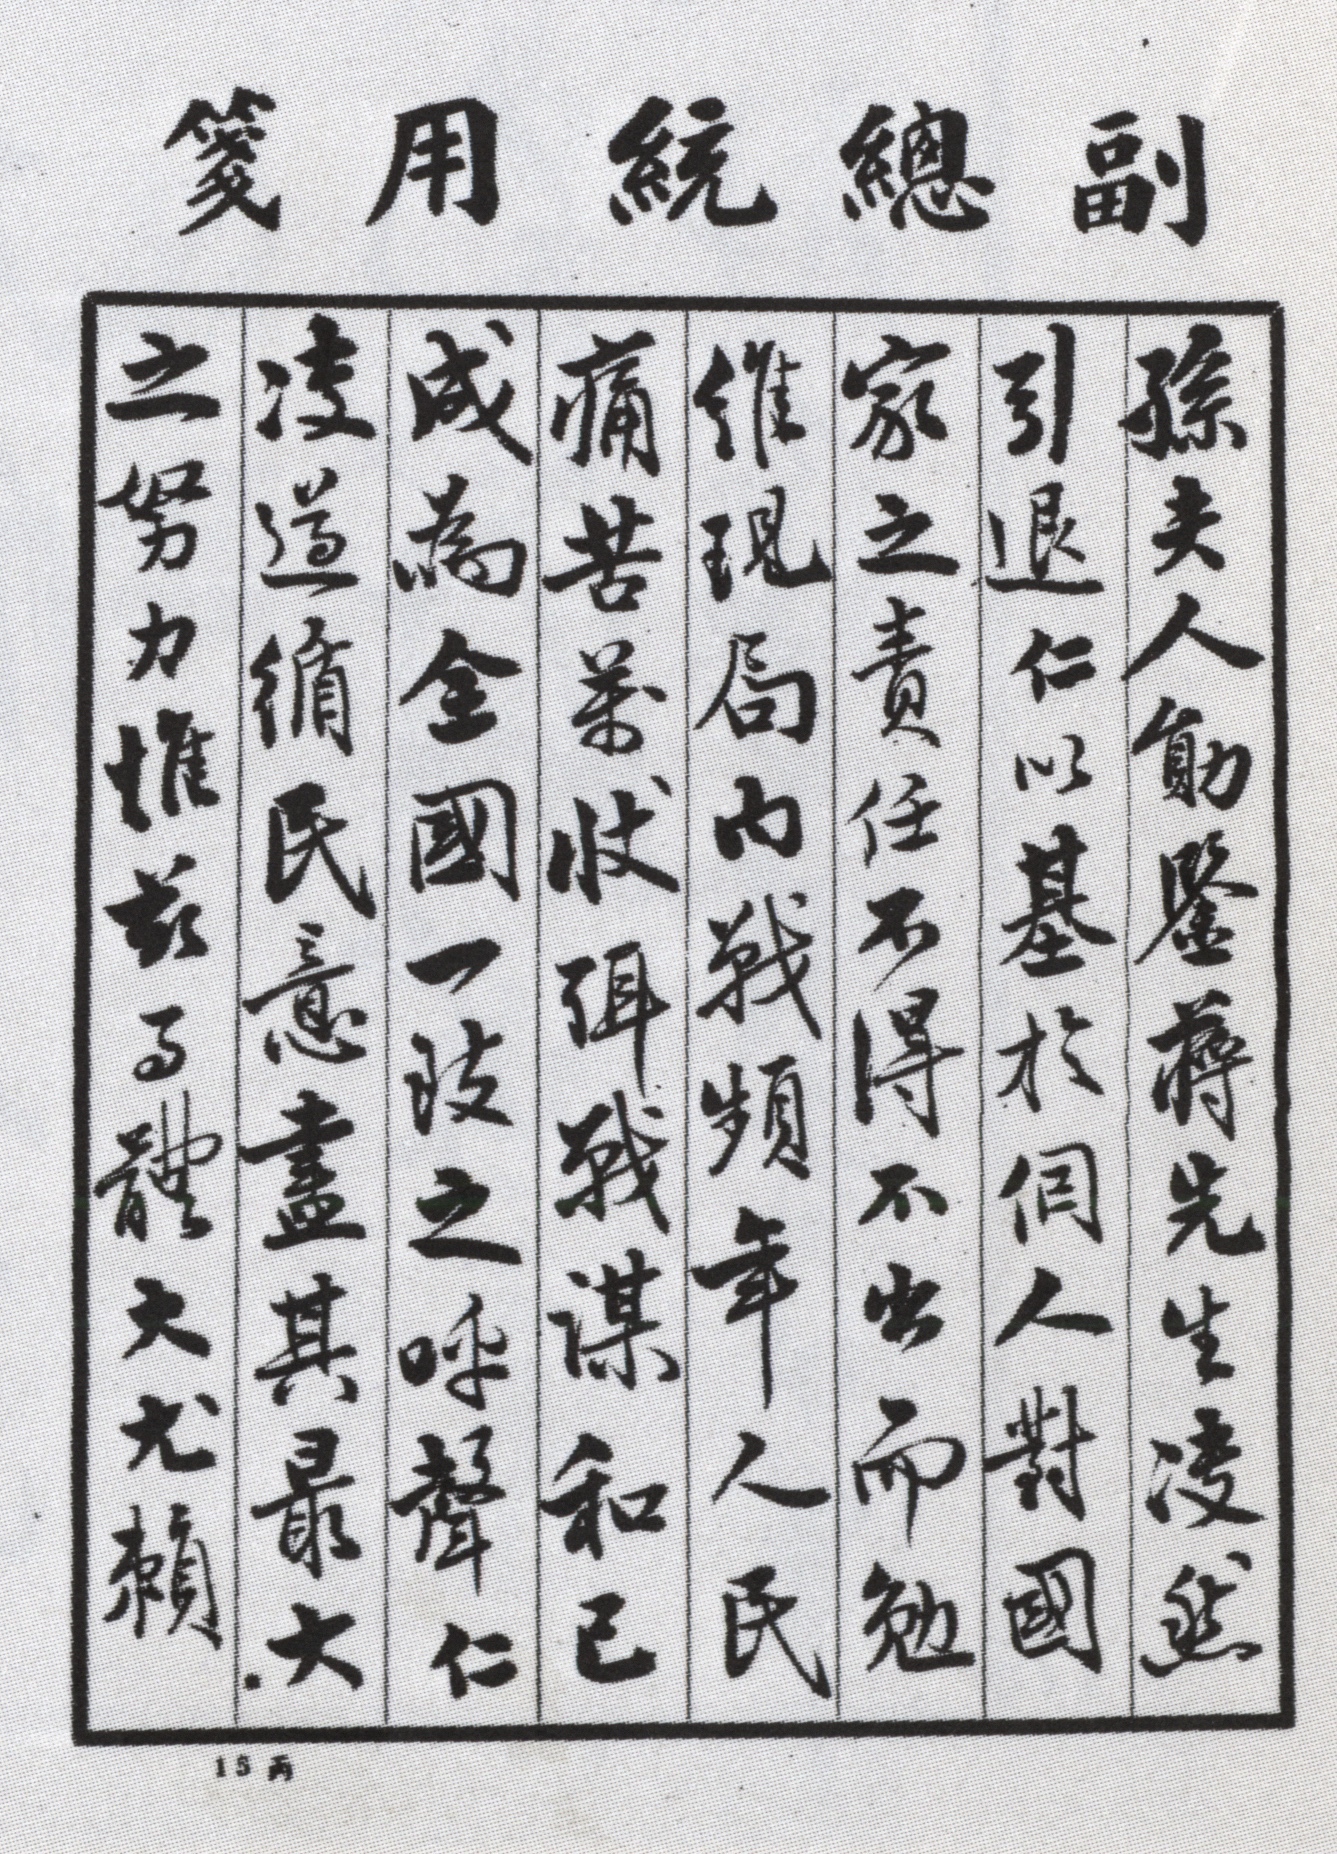 副總統用箋
孫夫人勛鑒蔣先生凌然
引退仁以基於個人對國
家之責任不得不出而勉
維現局內戰頻年人民
痛苦萬狀弭戰謀和已
成為全國一致之呼聲仁
凌遵循民意盡其最大
之努力惟茲事體大尤賴
丙15